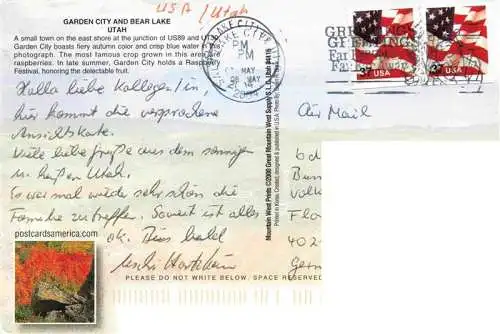 USA /Utah
GARDEN CITY AND BEAR LAKE
UTAH
A small town on the east shore at the junction of US89 and U130
Garden City boasts fiery autumn color and crisp blue water in this
photograph. The most famous crop grown in this area are
raspberries. In late summer, Garden City holds a Raspberry
Festival, honoring the delectable fruit.
Hallo liebe Kollegen/in,
hier kommt die versprochene
Ansichtskarte.
Viele liebe Grüße aus dem sonnigen
u. heißen Utah.
Es war mal wieder sehr schön die
Familie zu treffen. Soweit ist alles
ok. Bis bald
postcardsamerica.com
PLEASE DO NOT WRITE BELOW. SPACE RESERVED
Mountain West Prints ©2000 Great Mountain West Supply S.L.C. Utah 84116
Printed in Korea. Created, designed & published in U.S.A.
LAKE CITY
PM
PM
MAY
GREETINGS
37 USA
37 USA
Air Mail
Bun
Flo
402
Germ